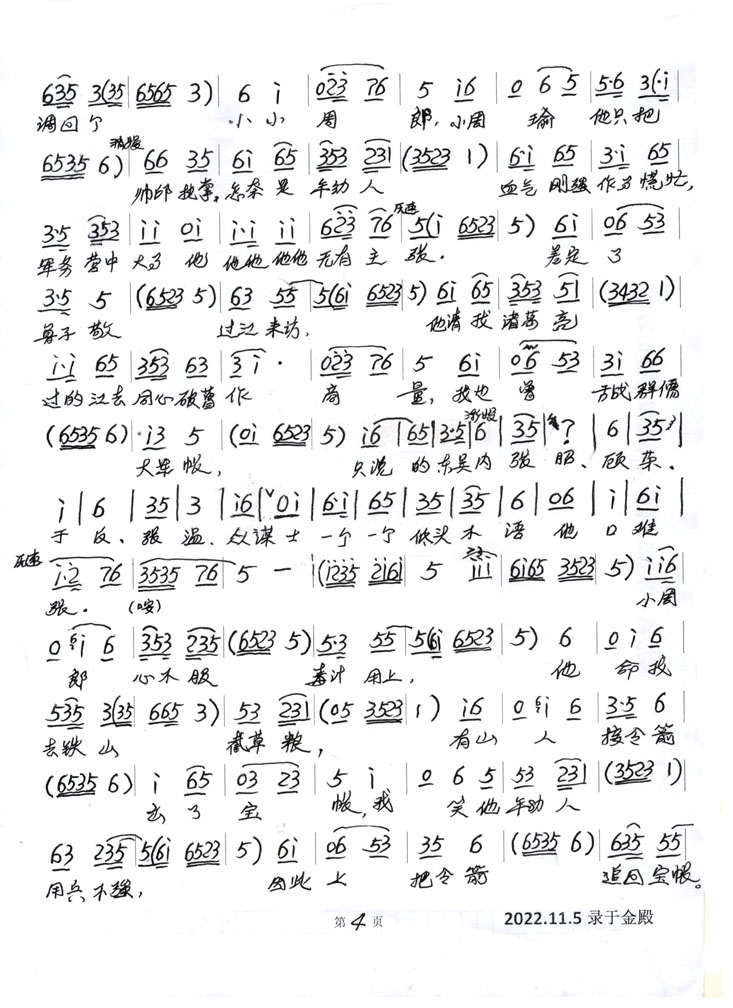 635 3(35 | 6565 3) | 6 i | 023 76 | 5 i6 | 0 6 5 | 5·6 3(·i
调回了 小小 周 郎，小周 瑜 他只把
渐慢
6535 6) | 66 35 | 6i 65 | 353 231 | (3523 1) | 6·i 65 | 3·i 65
帅印执掌。怎奈是 年幼人 血气刚强作了慌忙，
3·5 353 | ii 0i | i·i ii | 623 76 | 5(i 6523 | 5) 6i | 06 53
军务营中大子他他他他他无有主张。 差定了
3·5 5 | (6523 5) | 63 55 | 5(6i 6523 | 5) 6i 65 | 353 5i | (3432 1)
鲁子敬 过江来访， 他请我诸葛亮
i·i 65 | 353 63 | 3 i· | 023 76 | 5 6i | 06 53 | 3i 66
过的江去同心破曹作 商 量，我也曾 舌战群儒
(6535 6) | ·i3 5 | (0i 6523 | 5) i6 | 65 | 3·5 | 6 | 35 | ? | 6 | 35
大军帐， 只说的东吴内 张昭、顾荣、
i | 6 | 35 | 3 | i6 | 0i | 6·i | 65 | 35 | 35 | 6 | 06 | i | 6i
于 反、张温、众谋士一个一个低头不语他口难
i·2 76 | 3535 76 | 5 — | (i235 2i6i | 5 iii | 6i65 3523 | 5) ii6
张。 小周
0 i 6 | 353 235 | (6523 5) | 5·3 55 | 5(6i 6523 | 5) 6 | 0 i 6
郎 心不服 毒计用上， 他 命我
535 3(35 | 665 3) | 53 231 | (05 3523 | 1) i6 | 0 i 6 | 3·5 6
去铁山 截草粮， 有山人 接令箭
(6535 6) | i 65 | 03 23 | 5 i | 0 6 5 | 53 231 | (3523 1)
出了宝 帐，我 笑他年幼人
63 235 | 5(6i 6523 | 5) 6i | 06 53 | 35 6 | (6535 6) | 635 55
用兵不强， 因此上 把令箭 追回宝帐。
第4页 2022.11.5 录于金殿